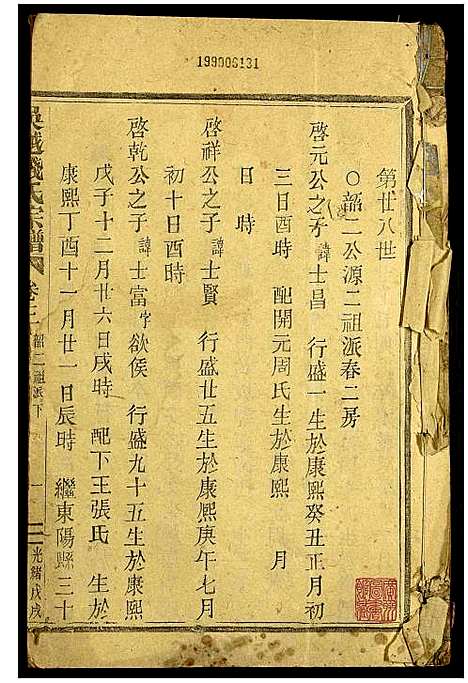 199006131
第廿八世
〇韶二公源二祖派春二房
啓元公之子諱士昌 行盛一生於康熙癸丑正月初
三日酉時 配開元周氏生於康熙 月
日時
啓祥公之子諱士賢 行盛廿五生於康熙庚午七月
初十日酉時
啓乾公之子諱士富字欲侯 行盛九十五生於康熙
戊子十二月廿六日戌時 配下王張氏 生於
康熙丁酉十一月廿一日辰時 繼東陽縣三十
吳越錢氏宗譜 卷三 韶二祖派下 一 光緒戊戌